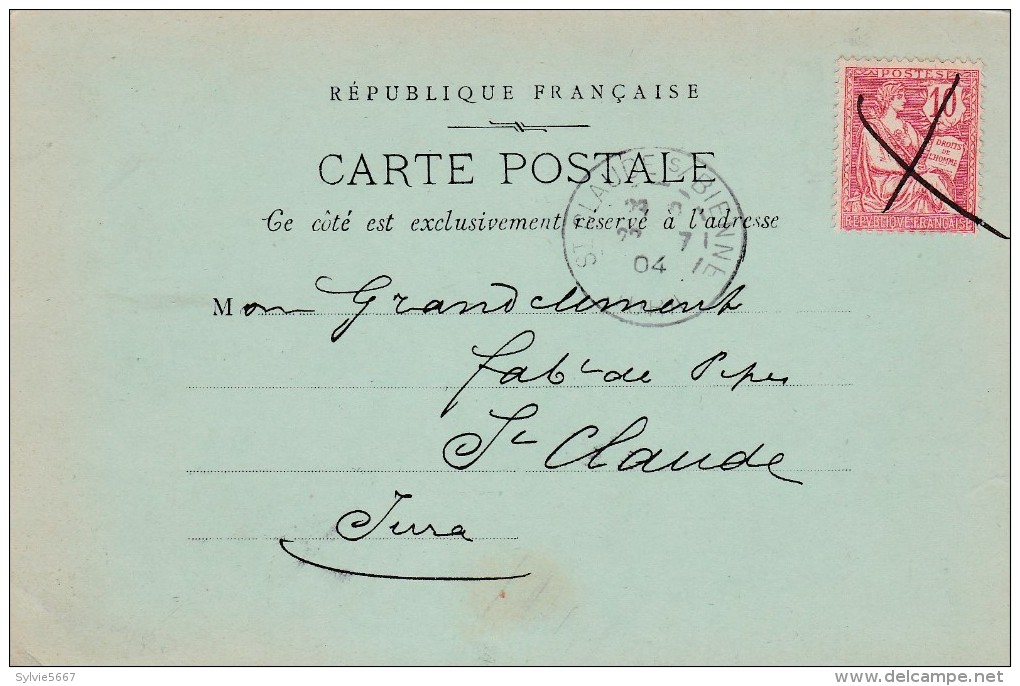 RÉPUBLIQUE FRANÇAISE
CARTE POSTALE
Ce côté est exclusivement réservé à l'adresse
POSTES
10
DROITS
DE
L'HOMME
REPUBLIQUE FRANÇAISE
ST CLAUDE S. BIENNE
22 7
04
Mon Grandclement
fabt de Pipes
St Claude
Jura
Sylvie5667
www.delcampe.net